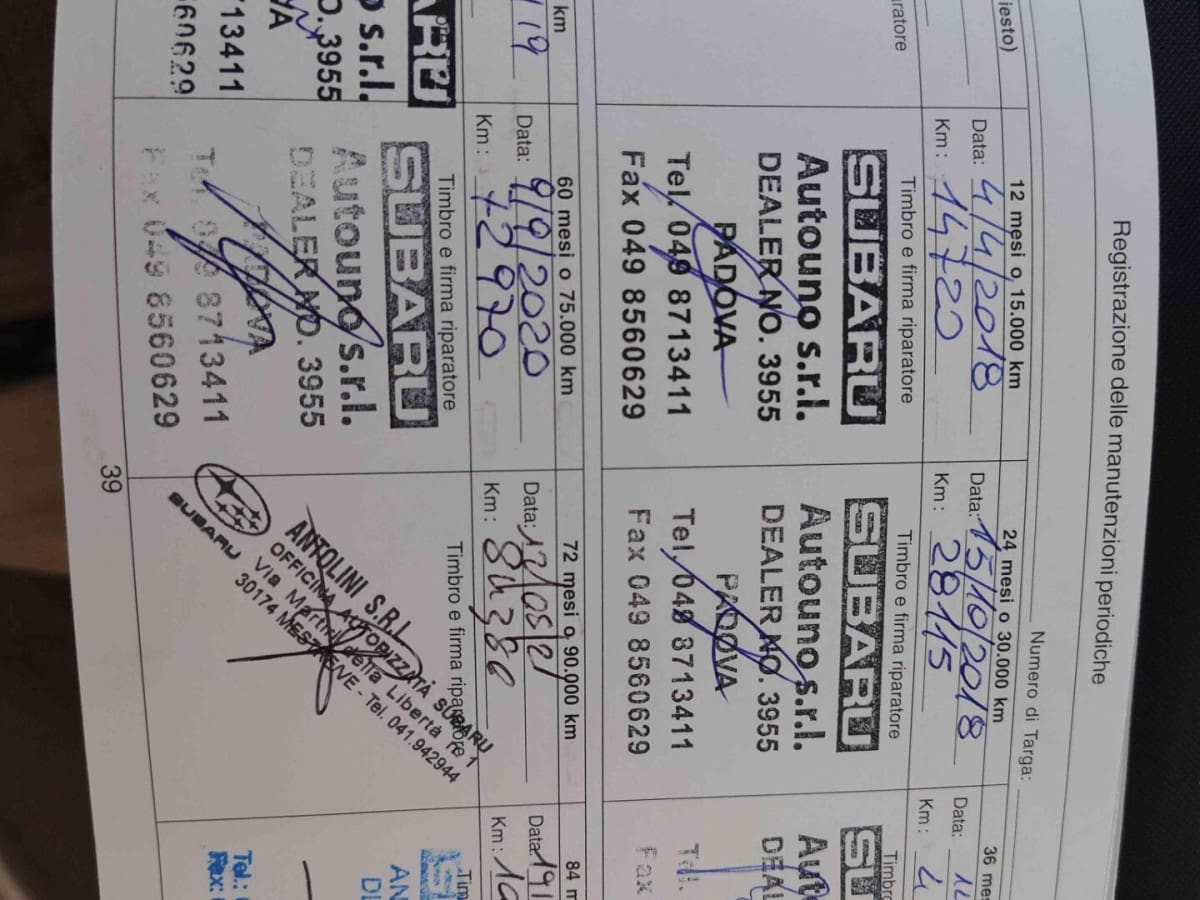 Registrazione delle manutenzioni periodiche
Numero di Targa:
iesto)
aratore
12 mesi o 15.000 km
Data: 4/4/2018
Km: 14720
Timbro e firma riparatore
SUBARU
Autouno s.r.l.
DEALER NO. 3955
PADOVA
Tel. 049 8713411
Fax 049 8560629
24 mesi o 30.000 km
Data: 15/10/2018
Km: 28115
Timbro e firma riparatore
SUBARU
Autouno s.r.l.
DEALER NO. 3955
PADOVA
Tel. 049 8713411
Fax 049 8560629
36 mes
Data: 14
Km: 4
Timbro
SU
Auto
DEAL
Tel.
Fax
km
119
ARU
o s.r.l.
O. 3955
VA
713411
560629
60 mesi o 75.000 km
Data: 9/9/2020
Km: 72970
Timbro e firma riparatore
SUBARU
Autouno s.r.l.
DEALER NO. 3955
PADOVA
Tel. 049 8713411
Fax 049 8560629
72 mesi o 90.000 km
Data: 12/05/21
Km: 84380
Timbro e firma riparatore
ANTOLINI S.R.L.
OFFICINA AUTORIZZATA SUBARU
Via Martiri della Libertà n. 1
30174 MESTRE VE - Tel. 041.942944
SUBARU
84 m
Data: 19/
Km: 10
Tim
AN
Tel.:
Fax:
39